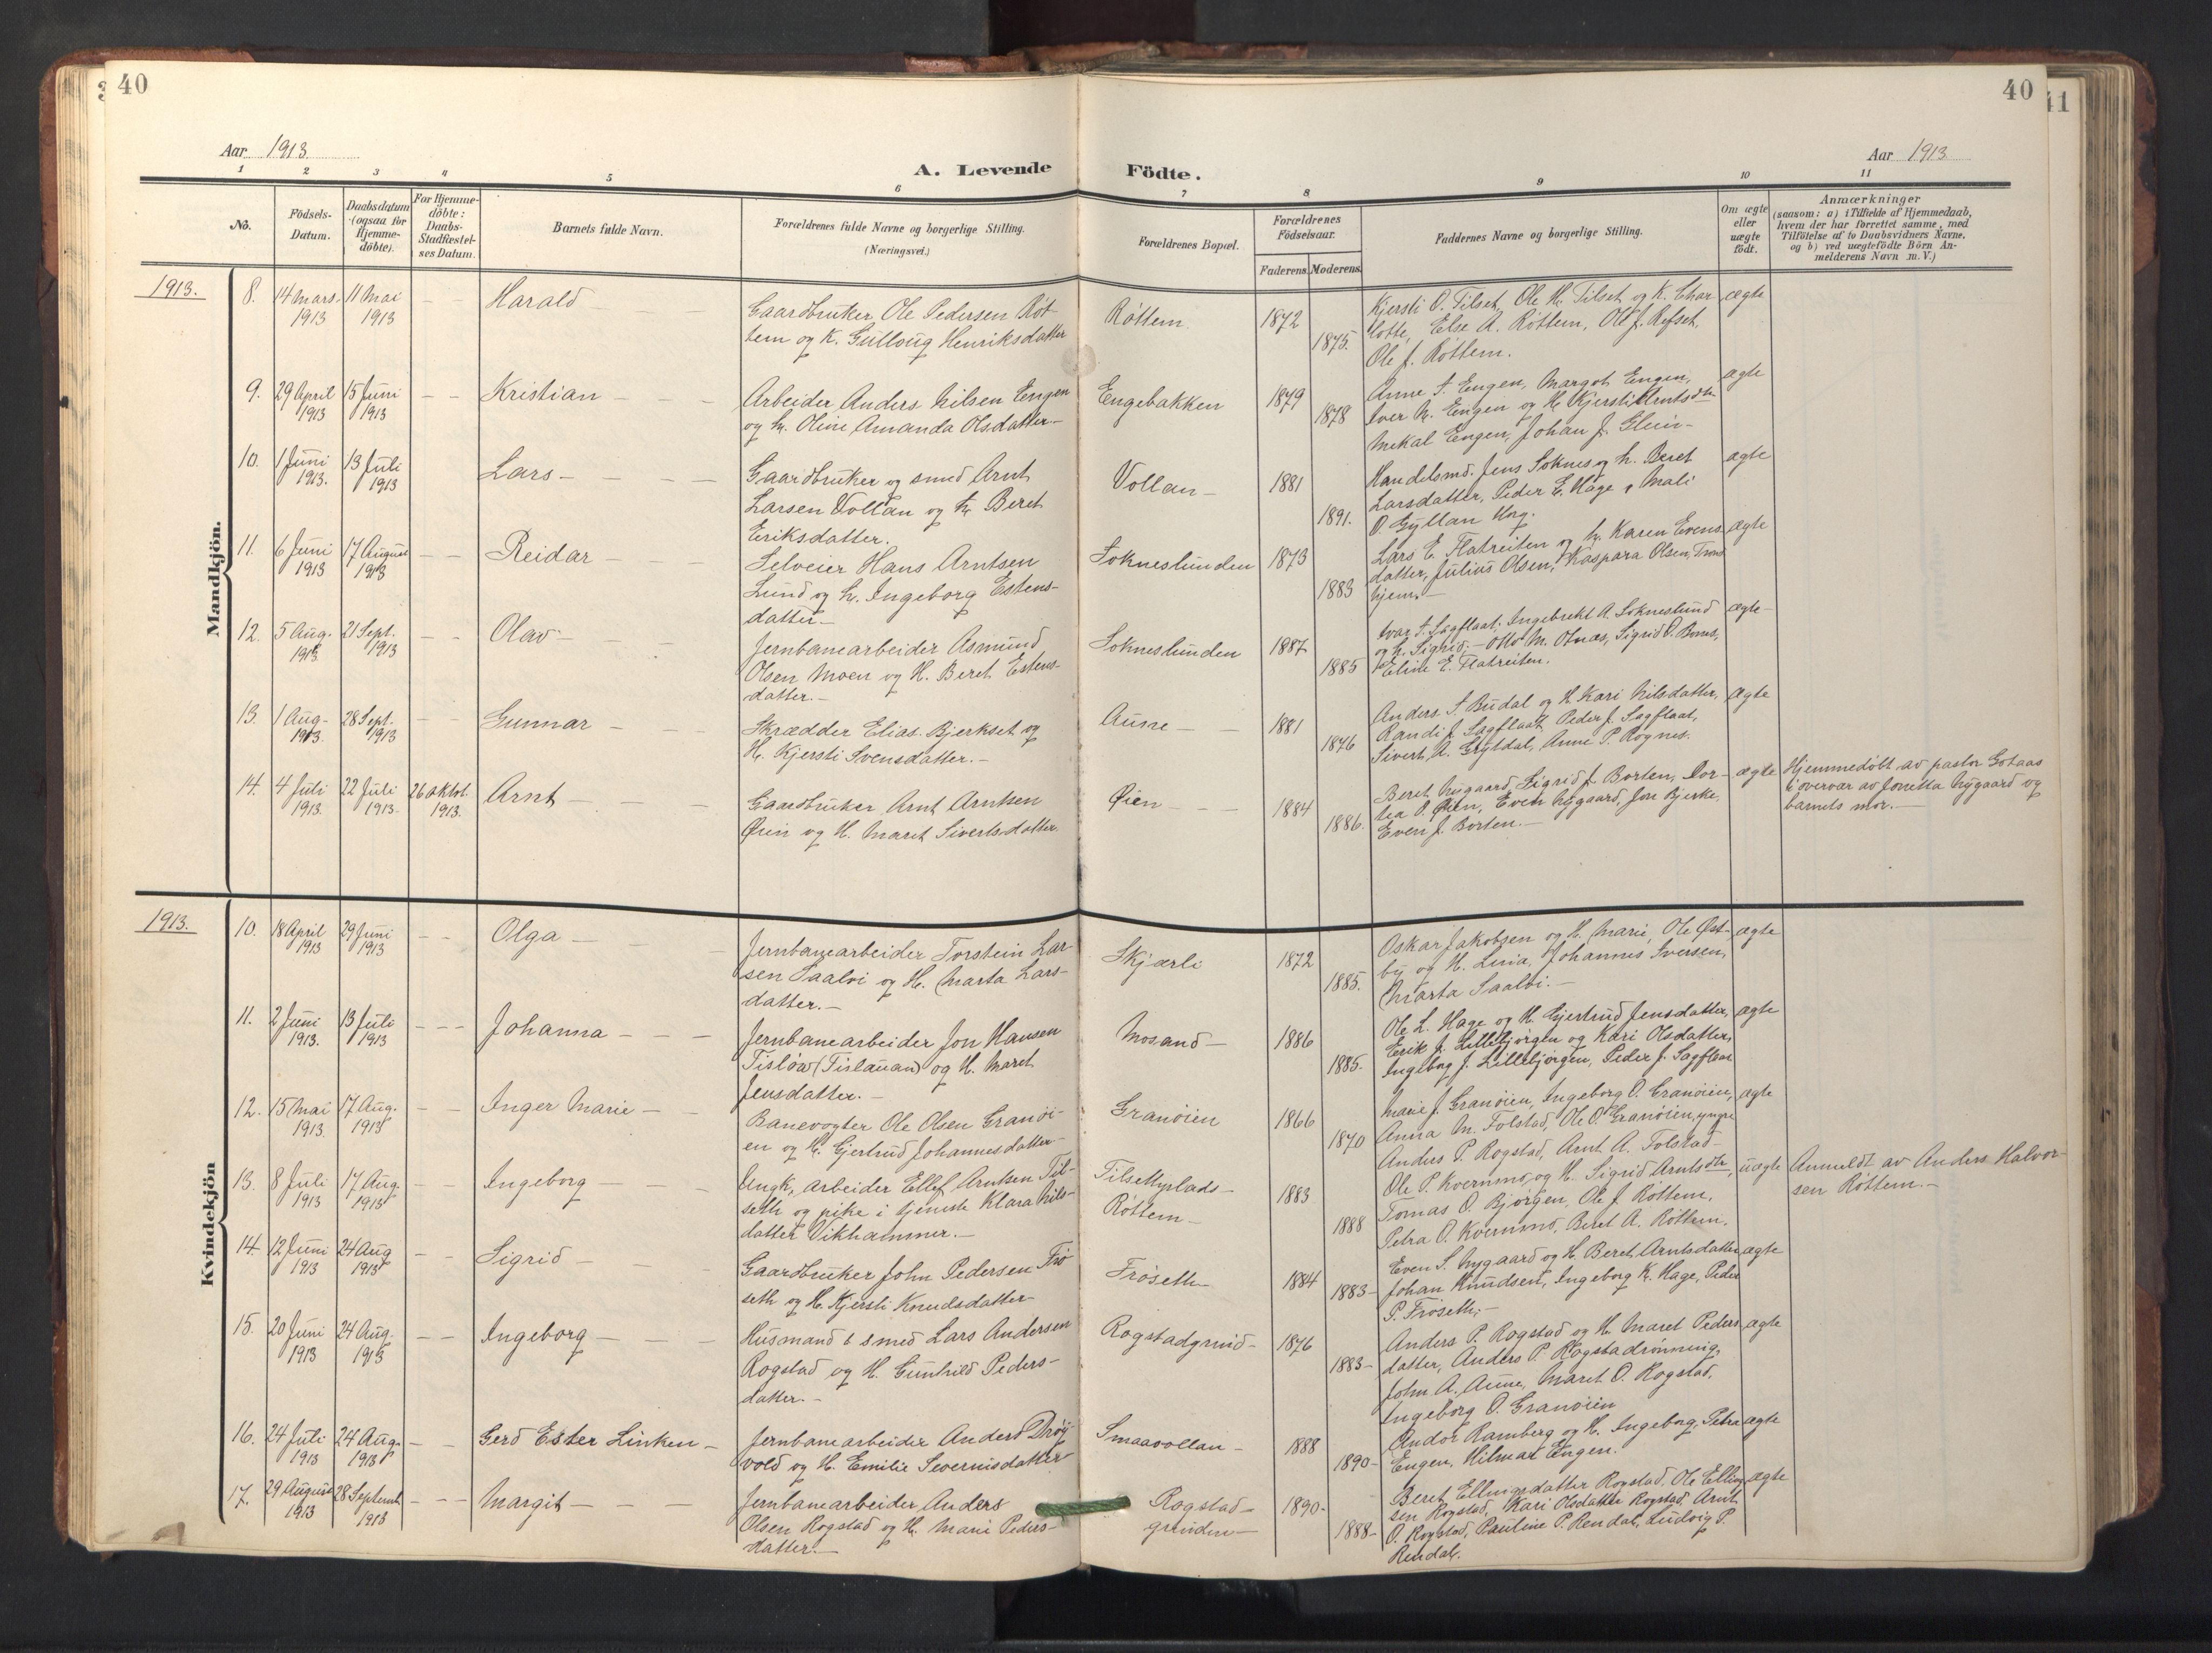 40
40
41
Aar 1913
A. Levende Födte.
Aar 1913
1 2 3 4 5 6 7 8 9 10 11
No.
Födsels-
Datum.
Daabsdatum
(ogsaa for
Hjemme-
döbte).
For Hjemme-
döbte:
Daabs-
Stadfæstel-
ses Datum.
Barnets fulde Navn.
Forældrenes fulde Navne og borgerlige Stilling.
(Næringsvei.)
Forældrenes Bopæl.
Forældrenes
Födselsaar.
Faderens. Moderens.
Faddernes Navne og borgerlige Stilling.
Om ægte
eller
uægte
födt.
Anmærkninger
(saasom: a) i Tilfælde af Hjemmedaab,
hvem der har forrettet samme, med
Tilföielse af to Daabsvidners Navne,
og b) ved uægtefödte Börn An-
melderens Navn m. V.)
Mandkjön.
1913.
8. 14 Mars 1913 11 Mai 1913 Harald
Gaardbruker Ole Pedersen Röt-
tem og K. Gulloug Henriksdatter
Röttem 1872 1875.
Kjersti O. Tilset, Ole H. Tilset og K. Char-
lotte, Else A. Röttem, Ole J. Refset,
Ole J. Röttem.
ægte
9. 29 April 1913 15 Juni 1913 Kristian
Arbeider Anders Nilsen Engen
og h. Oline Amanda Olsdatter
Engebakken 1879 1878
Anne I. Engen, Margot Engen,
Iver N. Engen og H. Kjersti Arntsdtr
Mekal Engen, Johan J.
ægte
10. 1 Juni 1913. 13 Juli 1913 Lars
Gaardbruker og smed Arnt
Larsen Vollan og h. Beret
Eriksdatter.
Vollan 1881 1891.
Handelsmd. Jens Soknes og h. Beret
Larsdatter, Peder E. Hage, Mali
O. Gyllan Horg.
ægte
11. 6 Juni 1913 17 August 1913 Reidar
Selveier Hans Arntsen
Lund og h. Ingeborg Estens-
datter.
Sokneslunden 1873 1883
Lars E. Flatreiten og h. Karen Evens-
datter, Julius Olsen, Kaspara Olsen, Trond-
hjem.
ægte
12. 5 Aug. 1913. 21 Sept. 1913 Olav
Jernbanearbeider Asmund
Olsen Moen og H. Beret Estens-
datter.
Sokneslunden 1887 1885
Ivar I. Sagflaat, Ingebrikt A. Sokneslund
og h. Sigrid, Otto M. Otnæs, Sigrid O.
Eline E. Flatreiten.
ægte
13. 1 Aug. 1913. 28 Sept. 1913 Gunnar
Skrædder Elias Bjerkset og
H. Kjersti Svensdatter.
Aune 1881 1876
Anders S. Budal og H. Kari Nilsdatter,
Randi J. Sagflaat, Peder J. Sagflaat,
Sivert A. Grytdal, Anne P. Rognes.
ægte
14. 4 Juli 1913. 22 Juli 1913. 26 Oktot. 1913. Arnt
Gaardbruker Arnt Arntsen
Øien og H. Maret Sivertsdatter.
Øien 1884 1886.
Beret Nygaard, Sigrid J. Borten, Dor-
tea O. Øien, Even Nygaard, Jon Bjerke,
Even J. Borten.
ægte
Hjemmedöbt av pastor Gotaas
i overvær av Jonetta Nygaard og
barnets mor.
Kvindekjön
1913.
10. 18 April 1913 29 Juni 1913 Olga
Jernbanearbeider Torstein Lar-
sen Saalvi og H. Marta Lars-
datter.
Skjærli 1872 1885.
Oskar Jakobsen og H. Marie, Ole Øst-
by og H. Lina, Johannis Iversen,
Marta Saalvi.
ægte
11. 2 Juni 1913. 13 Juli 1913 Johanna
Jernbanearbeider Jon Hansen
Tislöw (Tislauan) og H. Maret
Jensdatter.
Mosand 1886 1885.
Ole L. Hage og H. Gjertrud Jensdatter,
Erik J. Lillebjörgen og Kari Olsdatter,
Ingebog J. Lillebjörgen, Peder J. Sagflaat
ægte
12. 15 Mai 1913. 17 Aug. 1913 Inger Marie
Banevogter Ole Olsen Granöi-
en og H. Gjertrud Johannesdatter
Granöien 1866 1870
Marie J. Granöien, Ingeborg O. Granöien,
Anna M. Folstad, Ole O. Granöien, yngre
Anders P. Rogstad, Arnt A. Folstad
ægte
13. 8 Juli 1913 17 Aug. 1913 Ingeborg
Ungk, arbeider Ellef Arntsen Til-
seth og pike i tjeneste Klara Nils-
datter Vikhammer.
Tilsethplads
Röttem 1883 1888
Ole P. Kvernmo og H. Sigrid Arntsdtr,
Tomas O. Björgen, Ole J. Röttem,
Petra O. Kvernmo, Beret A. Röttem.
uægte
Anmeldt av Anders Halvor-
sen Röttem.
14. 12 Juni 1913 24 Aug 1913 Sigrid
Gaardbruker John Pedersen Frö-
seth og H. Kjersti Knudsdatter
Fröseth 1884 1883
Even S. Nygaard og H. Beret Arntsdatter
Johan Knudsen, Ingeborg K. Hage, Peder
P. Fröseth.
ægte
15. 20 Juni 1913 24 Aug. 1913 Ingeborg
Husmand & smed Lars Andersen
Rogstad og H. Gunhild Peders-
datter.
Rogstadgrind 1876 1883
Anders P. Rogstad og H. Maret Peders-
datter, Anders P. Rogstadrönning,
John A. Aune, Maret O. Rogstad,
Ingeborg O. Granöien
ægte
16. 24 Juli 1913 24 Aug. 1913 Gerd Ester Linken
Jernbanearbeider Anders Dröy-
vold og H. Emilie Severinsdatter
Smaavollan 1888 1890
Andor Ramberg og H. Ingeborg, Petra
Engen, Hilmar Engen.
ægte
17. 29 August 1913 28 Septemb. 1913 Margit
Jernbanearbeider Anders
Olsen Rogstad og H. Marie Peders-
datter.
Rogstad-
grinden 1890 1888
Beret Ellingsdatter Rogstad, Ole Elling-
sen Rogstad, Kari Olsdatter Rogstad, Arnt
O. Rogstad, Pauline P. Rendal, Ludvig P.
Rendal.
ægte